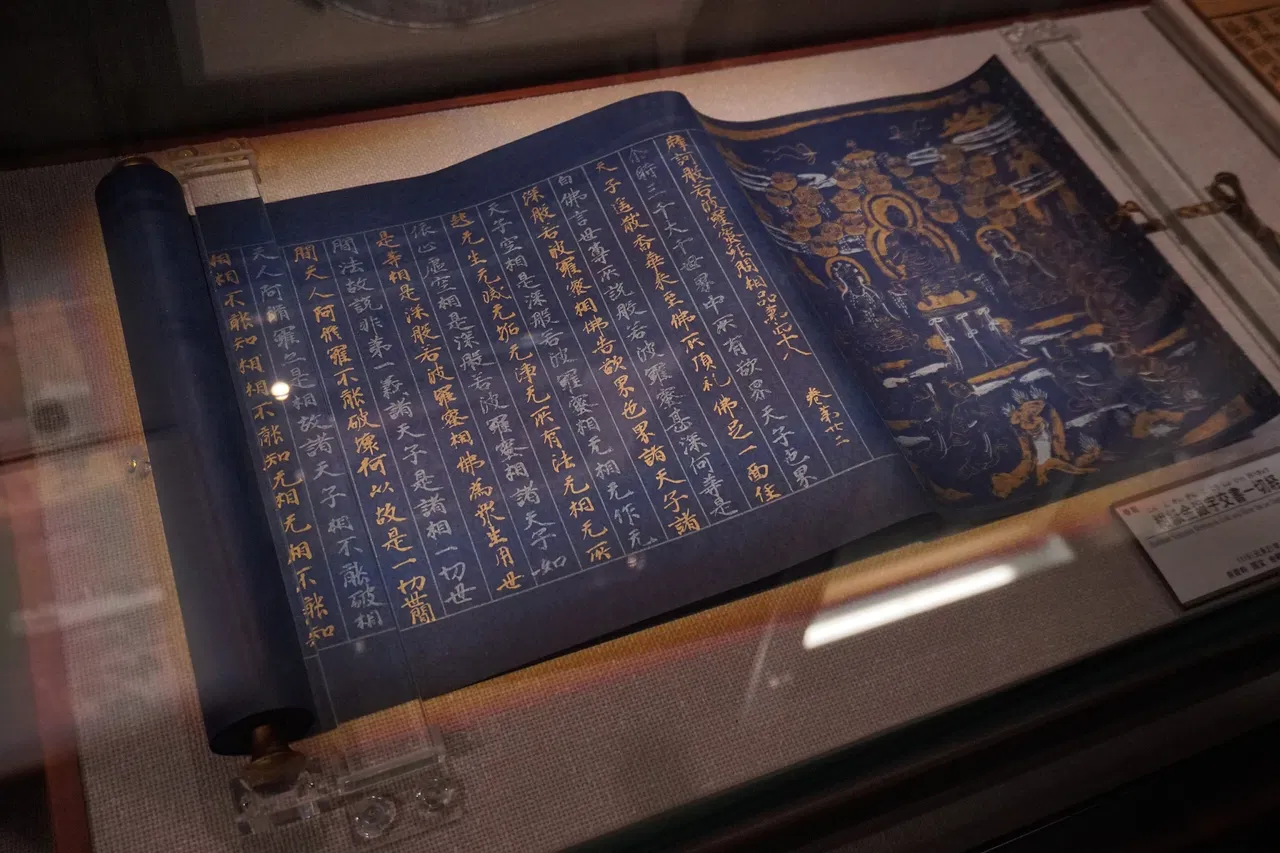 摩訶般若波羅蜜経問相品第卌八 卷第廿二
尒時三千大千世界中所有欲界天子色界
天子遥散香華来至佛所頂礼佛足一面住
白佛言世尊所説般若波羅蜜甚深何等是
深般若波羅蜜相佛告欲界色界諸天子諸
天子空相是深般若波羅蜜相无相无作无
起无生无滅无垢无浄无所有法无相无所
依止虚空相是深般若波羅蜜相諸天子如
是等相是深般若波羅蜜相佛為衆生用世
間法故説非第一義諸天子是諸相一切世
間天人阿脩羅不能破壊何以故是一切世間
天人阿脩羅亦是相故諸天子相不能破相
相相不能知相相不能知无相无相不能知
紺紙金銀字交書一切経